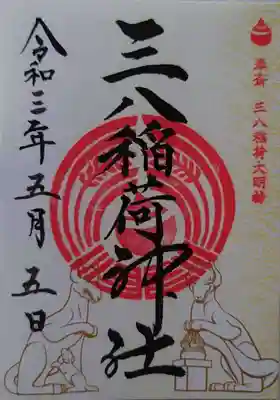 奉斎 三八稲荷大明神
三八稲荷神社
令和三年五月五日